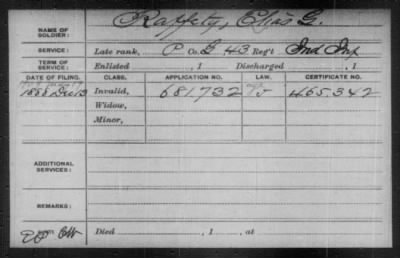 NAME OF SOLDIER: Raffety, Elias G.
SERVICE: Late rank, P Co. G 43 Reg't Ind Inf
TERM OF SERVICE: Enlisted , 1 Discharged , 1
DATE OF FILING. CLASS. APPLICATION NO. LAW. CERTIFICATE NO.
1888 Dec 13 Invalid, 681,732 465,342
Widow,
Minor,
ADDITIONAL SERVICES:
REMARKS:
Died , 1 , at